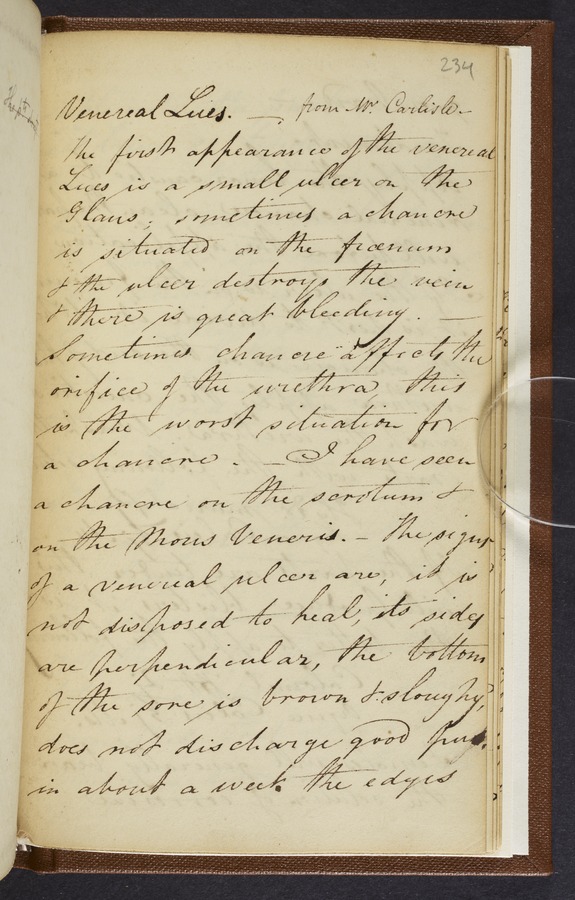 234
Venereal Lues. — from Mr. Carlisle—
The first appearance of the venereal
Lues is a small ulcer on the
Glans; sometimes a chancre
is situated on the frœnum
& the ulcer destroys the vein
& there is great bleeding. —
Sometimes chancre affects the
orifice of the urethra, this
is the worst situation for
a chancre. — I have seen
a chancre on the scrotum &
on the Mons Veneris. — The signs
of a venereal ulcer are, it is
not disposed to heal, its sides
are perpendicular, the bottom
of the sore is brown & sloughy,
does not discharge good pus.
in about a week the edges